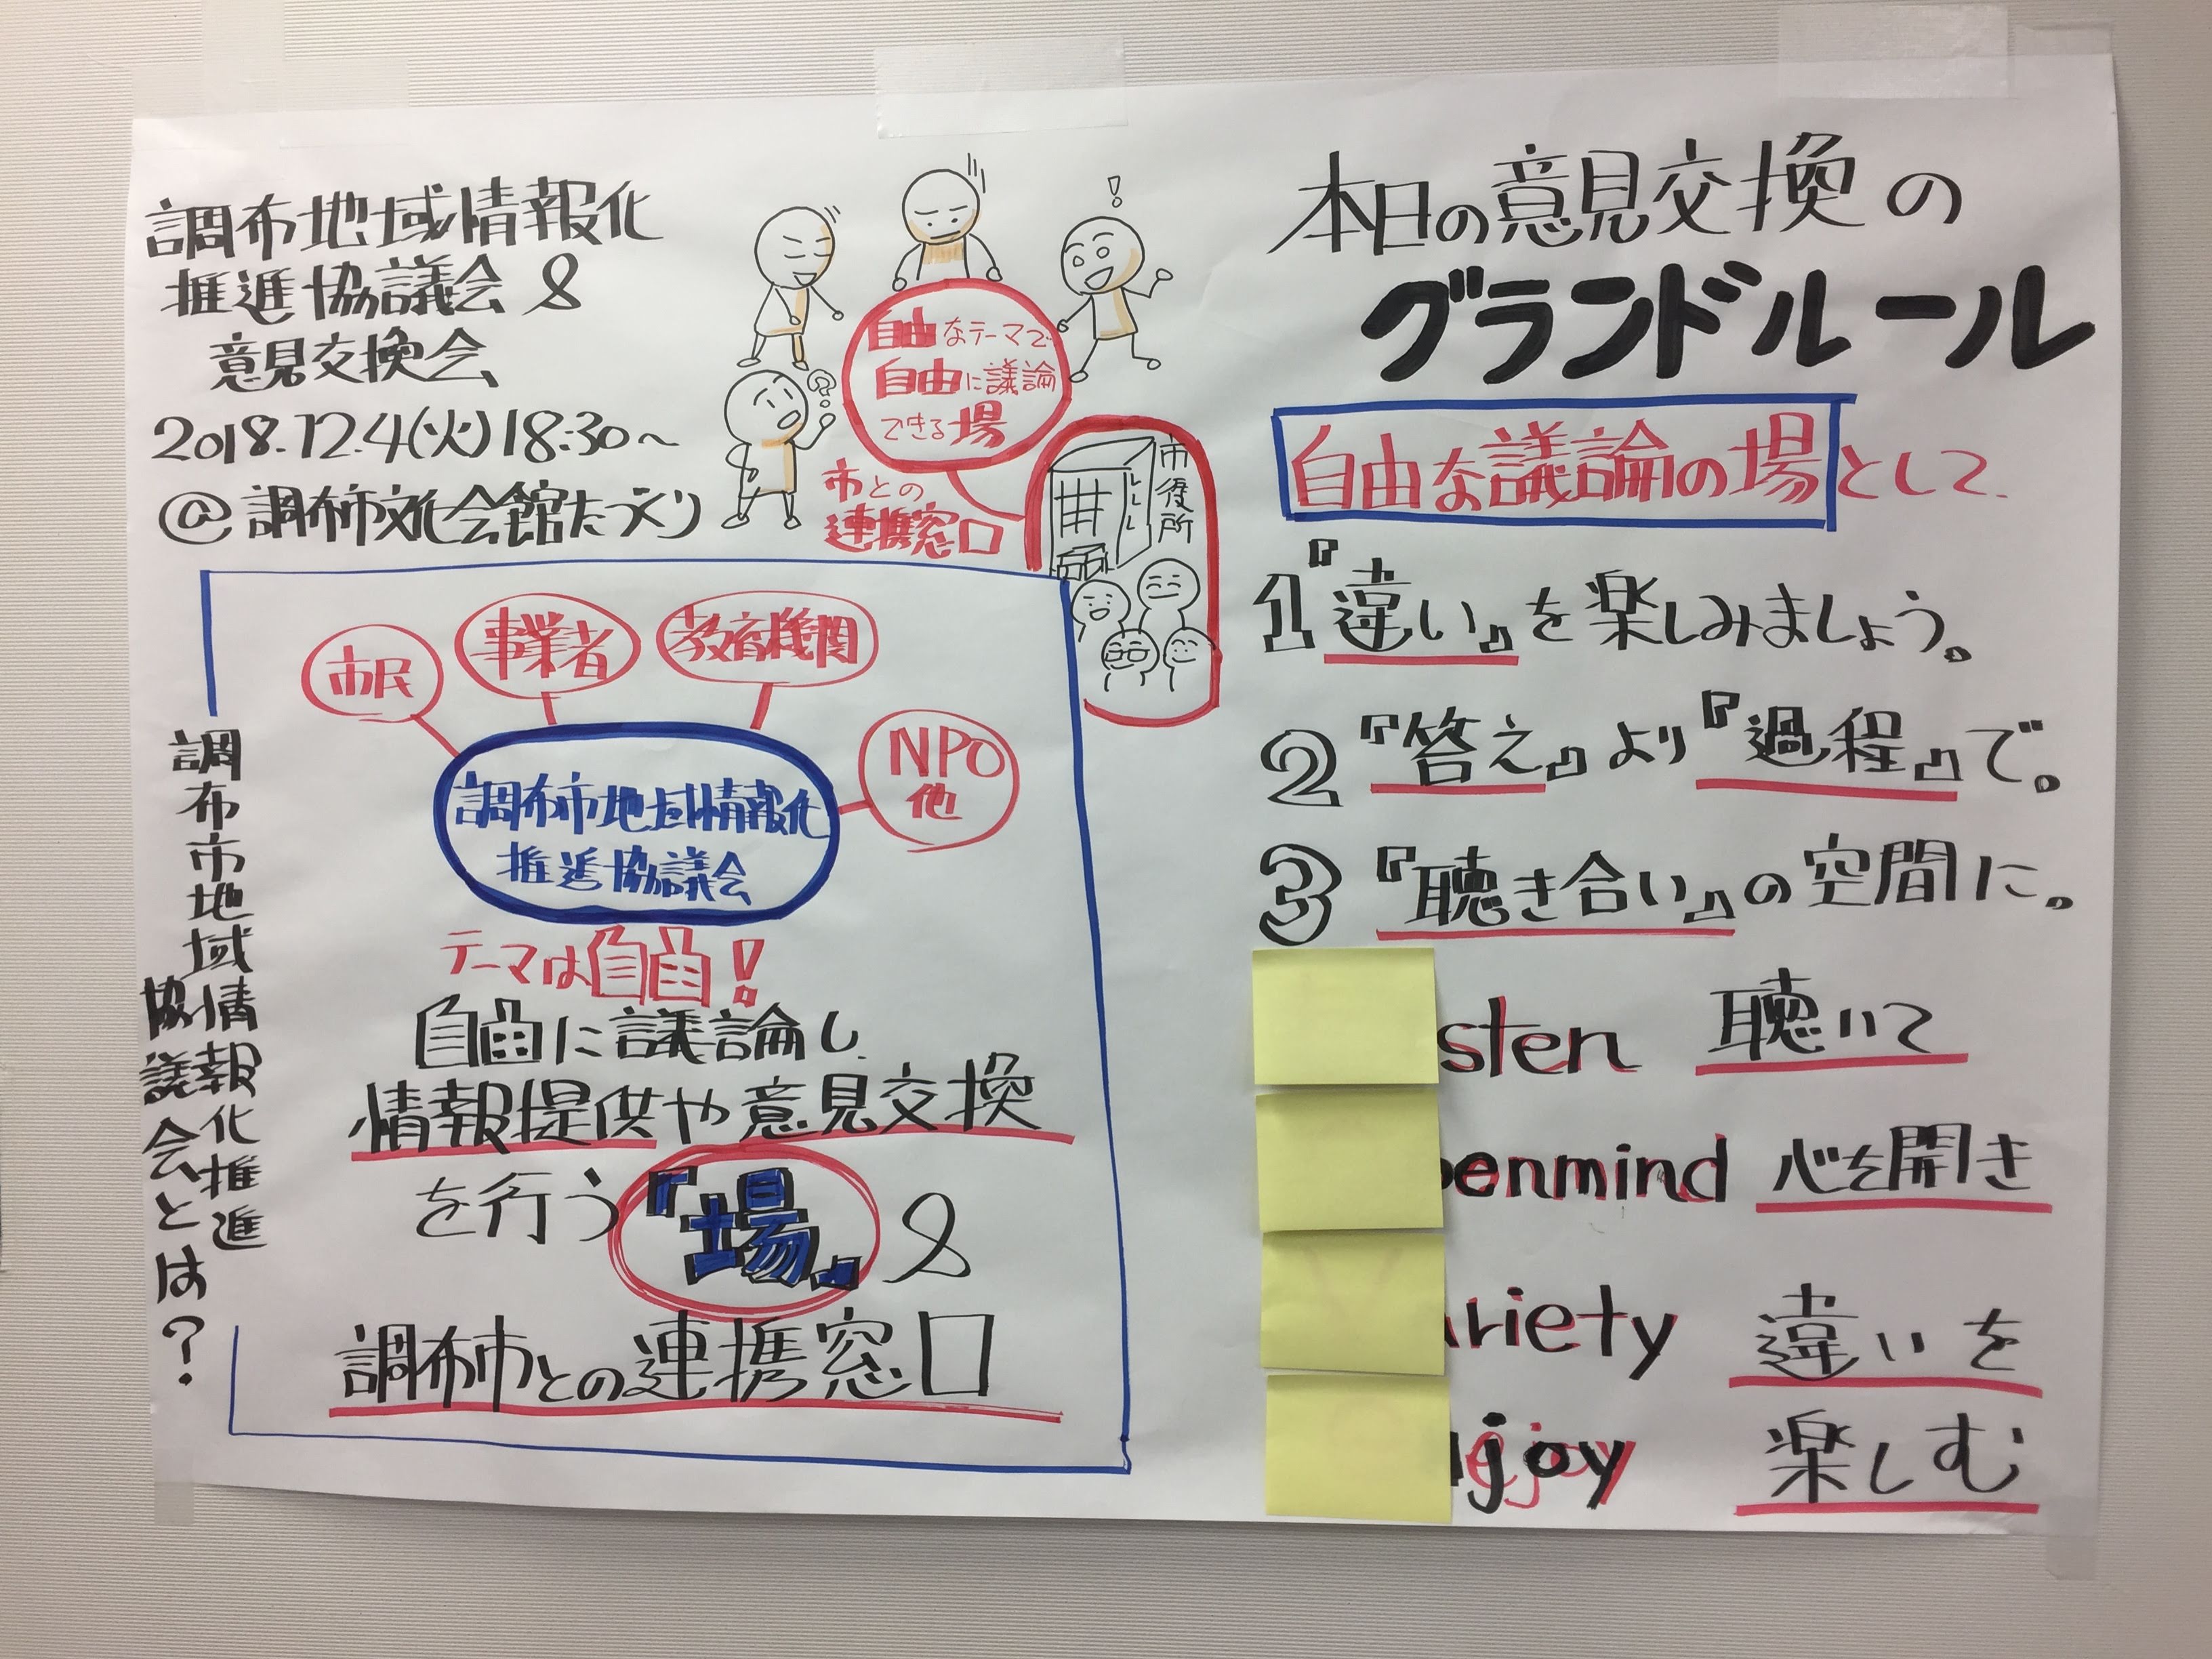 調布地域情報化
推進協議会&
意見交換会
2018.12.4(火)18:30~
@調布市文化会館たづくり
自由なテーマで
自由に議論
できる場
市との
連携窓口
市役所
調布市地域情報化推進
協議会とは?
市民
事業者
教育機関
NPO
他
調布市地域情報化
推進協議会
テーマは自由!
自由に議論し、
情報提供や意見交換
を行う『場』&
調布市との連携窓口
本日の意見交換の
グランドルール
自由な議論の場として、
1『違い』を楽しみましょう。
2『答え』より『過程』で。
3『聴き合い』の空間に。
sten 聴いて
penmind 心を開き
riety 違いを
joy 楽しむ